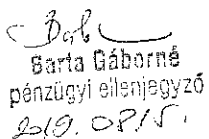 Barta Gáborné
pénzügyi ellenjegyző
2019. 08/5.